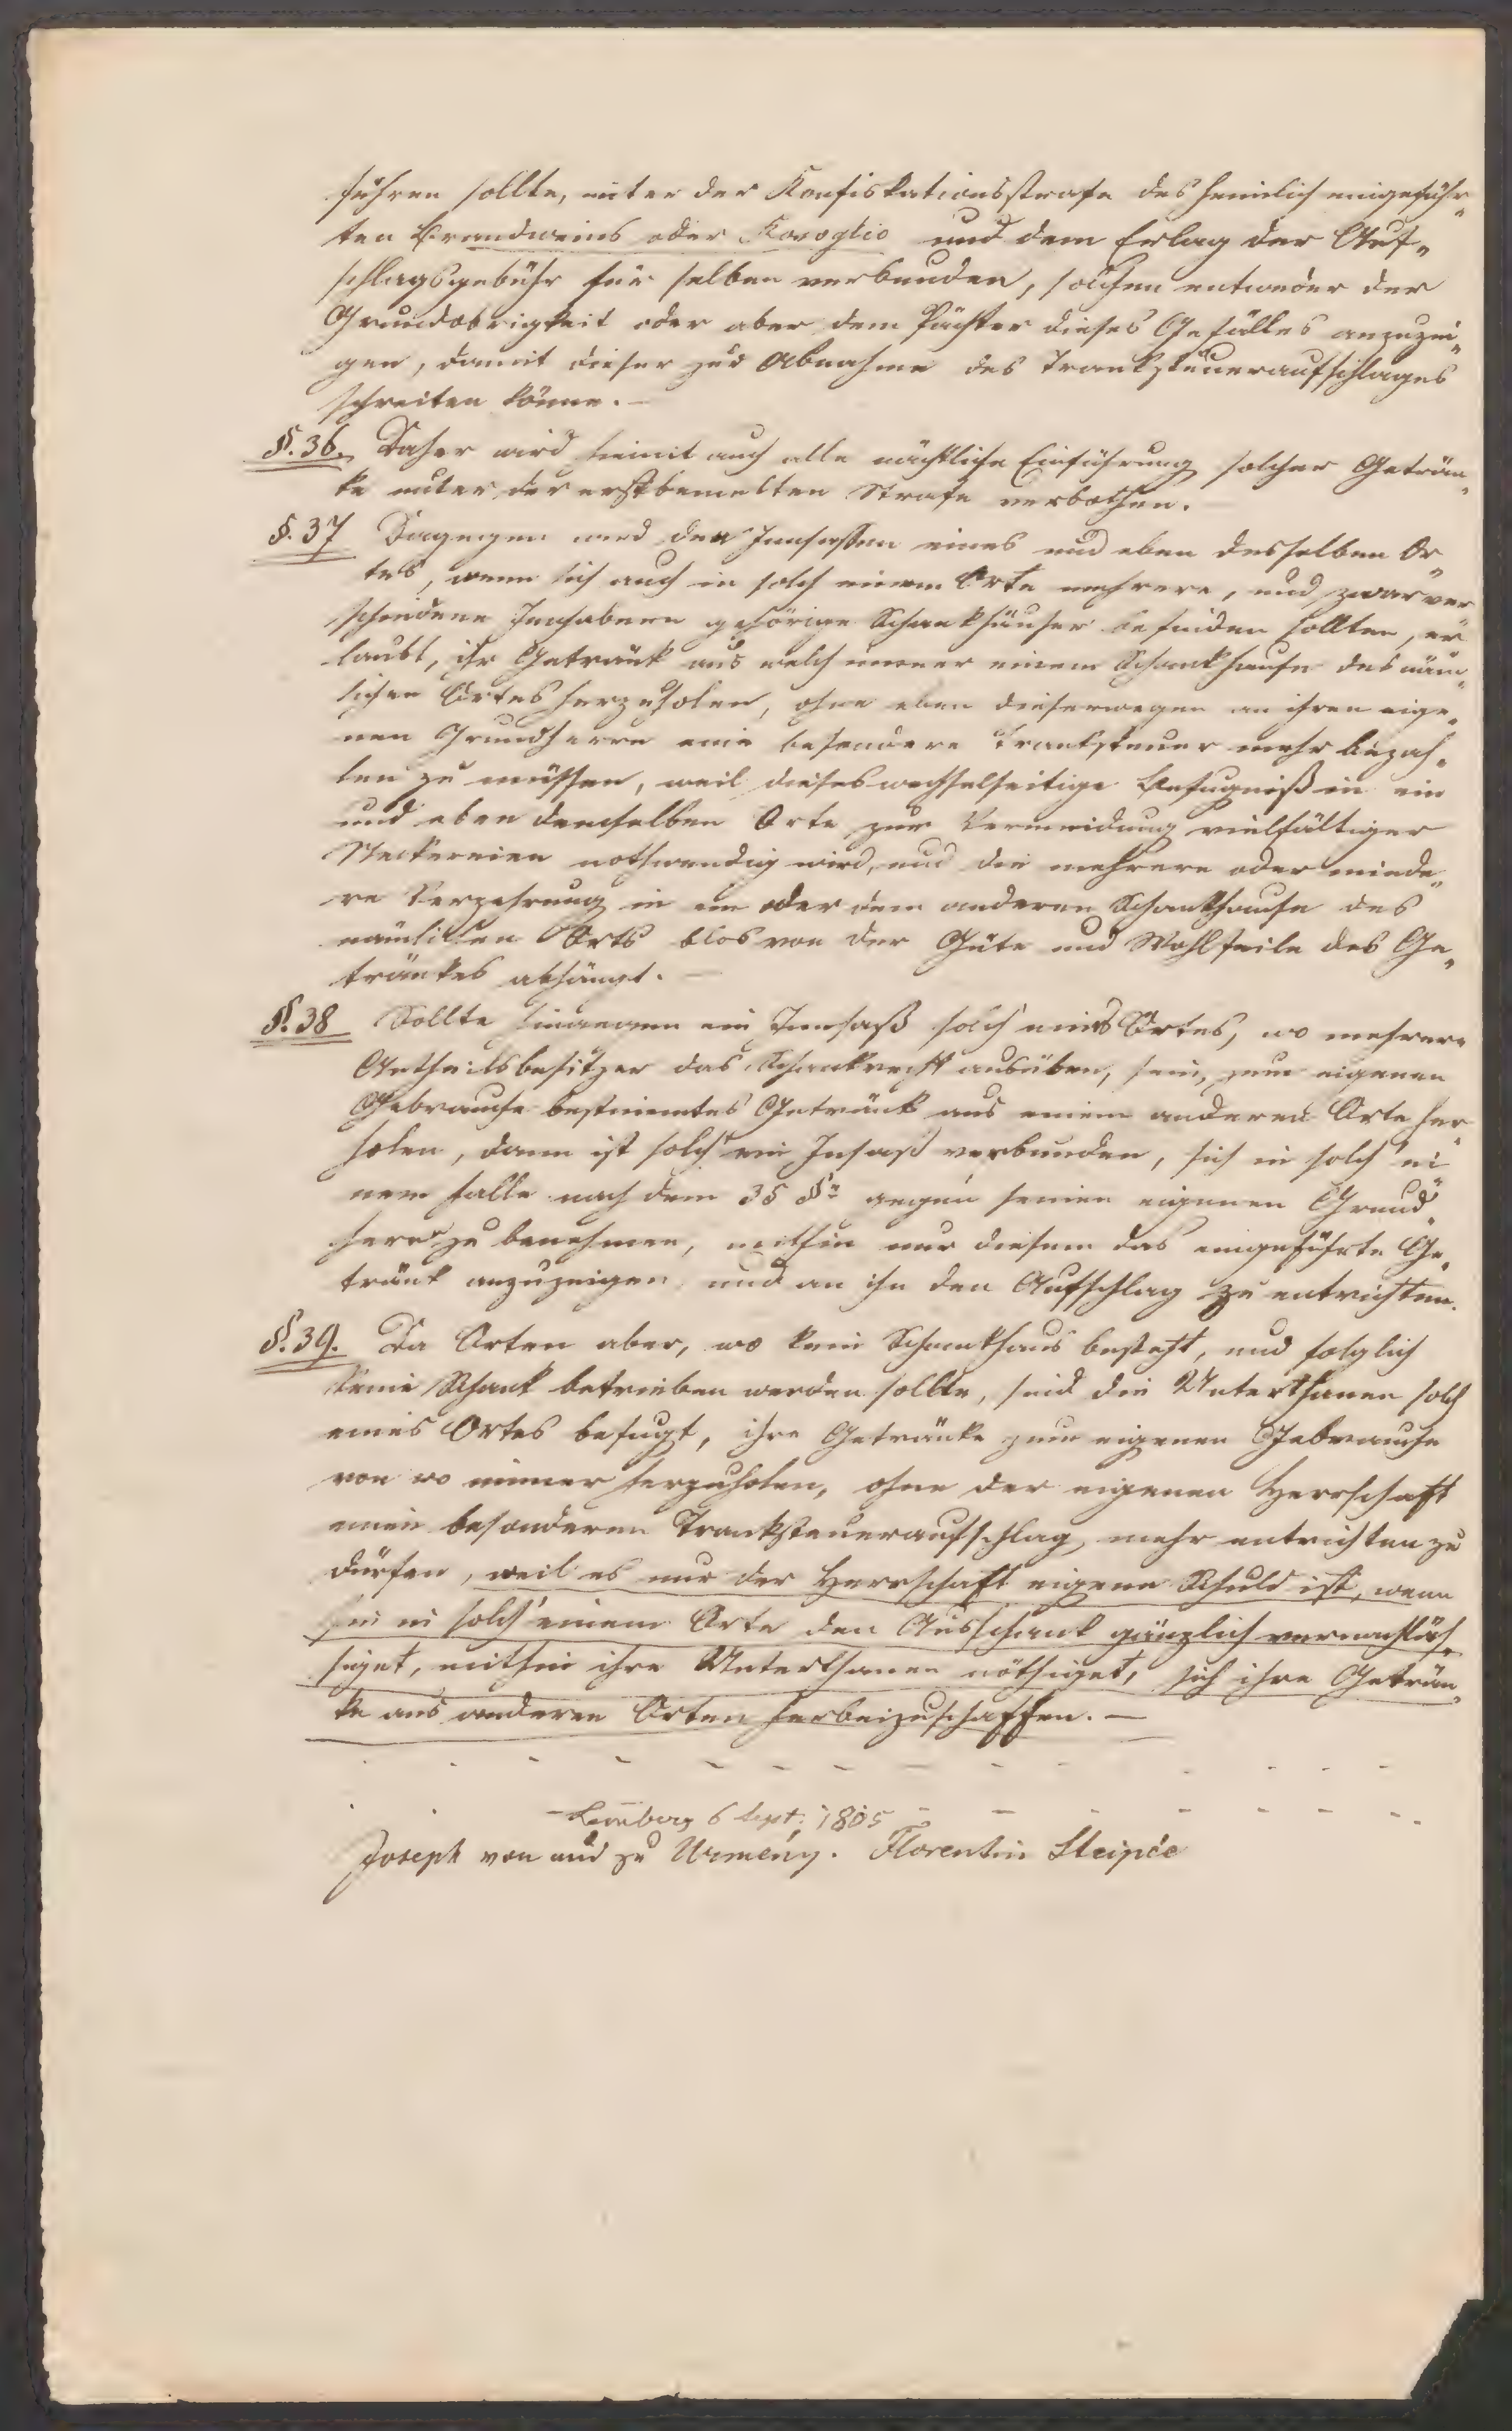 führen sollte, unter der Konfiskationsstrafe des heimlich eingeführ„
ten Brandweins oder Rosoglio und dem Erlag der Auf„
schlagsgebühr für selben verbunden, solchen entweder der
Grundobrigkeit oder aber dem Pächter dieses Gefälles anzuzei„
gen, damit dieser zur Abnahme des Tranksteueraufschlages
schreiten könne. —
§. 36. Daher wird hiemit auch alle nächtliche Einführung solcher Geträn„
ke unter der erstbemelten Strafe verbothen.
§. 37 Dagegen wird den Innsassen eines und eben desselben Or„
tes, wenn sich auch in solch einem Orte mehrere, und zwar ver„
schiedene Innhabern gehörige Schankhäuser befinden sollten, er„
laubt, ihr Getränk aus welch immer einem Schankhause des näm„
lichen Ortes herzuholen, ohne eben dieserwegen an ihren eige„
nen Grundherrn eine besondere Tranksteuer mehr bezah„
len zu müssen, weil dieses wechselseitige Befugniß in ein
und eben demselben Orte zur Vermeidung vielfältiger
Neckereien nothwendig wird, und die mehrere oder minde„
re Verzehrung in ein oder dem anderen Schankhause des
nämlichen Orts blos von der Güte und Wohlfeile des Ge„
tränkes abhängt. —
§. 38 Sollte hingegen ein Innsaß solch eines Ortes, wo mehrere
Antheilsbesitzer das Schankrecht ausüben, sein, zum eigenen
Gebrauche bestimmtes Getränk aus einem anderen Orte her„
holen, dann ist solch ein Insaß verbunden, sich in solch ei„
nem Falle nach dem 35 §n gegen seinen eigenen Grund„
herrn zu benehmen, mithin nur diesem das eingeführte Ge„
tränk anzuzeigen und an ihn den Aufschlag zu entrichten.
§. 39. Da Orten aber, wo kein Schankhaus besteht, und folglich
keine Schank betrieben werden sollte, sind die Unterthanen solch
eines Ortes befugt, ihre Getränke zum eigenen Gebrauche
von wo immer herzuholen, ohne der eigenen Herrschaft
einen besonderen Tranksteueraufschlag mehr entrichten zu
dürfen, weil es nur der Herrschaft eigene Schuld ist, wenn
sie in solch' einem Orte den Ausschank gänzlich vernachläs„
siget, mithin ihre Unterthanen nöthiget, sich ihre Geträn„
ke aus anderen Orten herbeizuschaffen. —
Lemberg 6 Sept. 1805
Joseph von und zu Urmény. Florentin